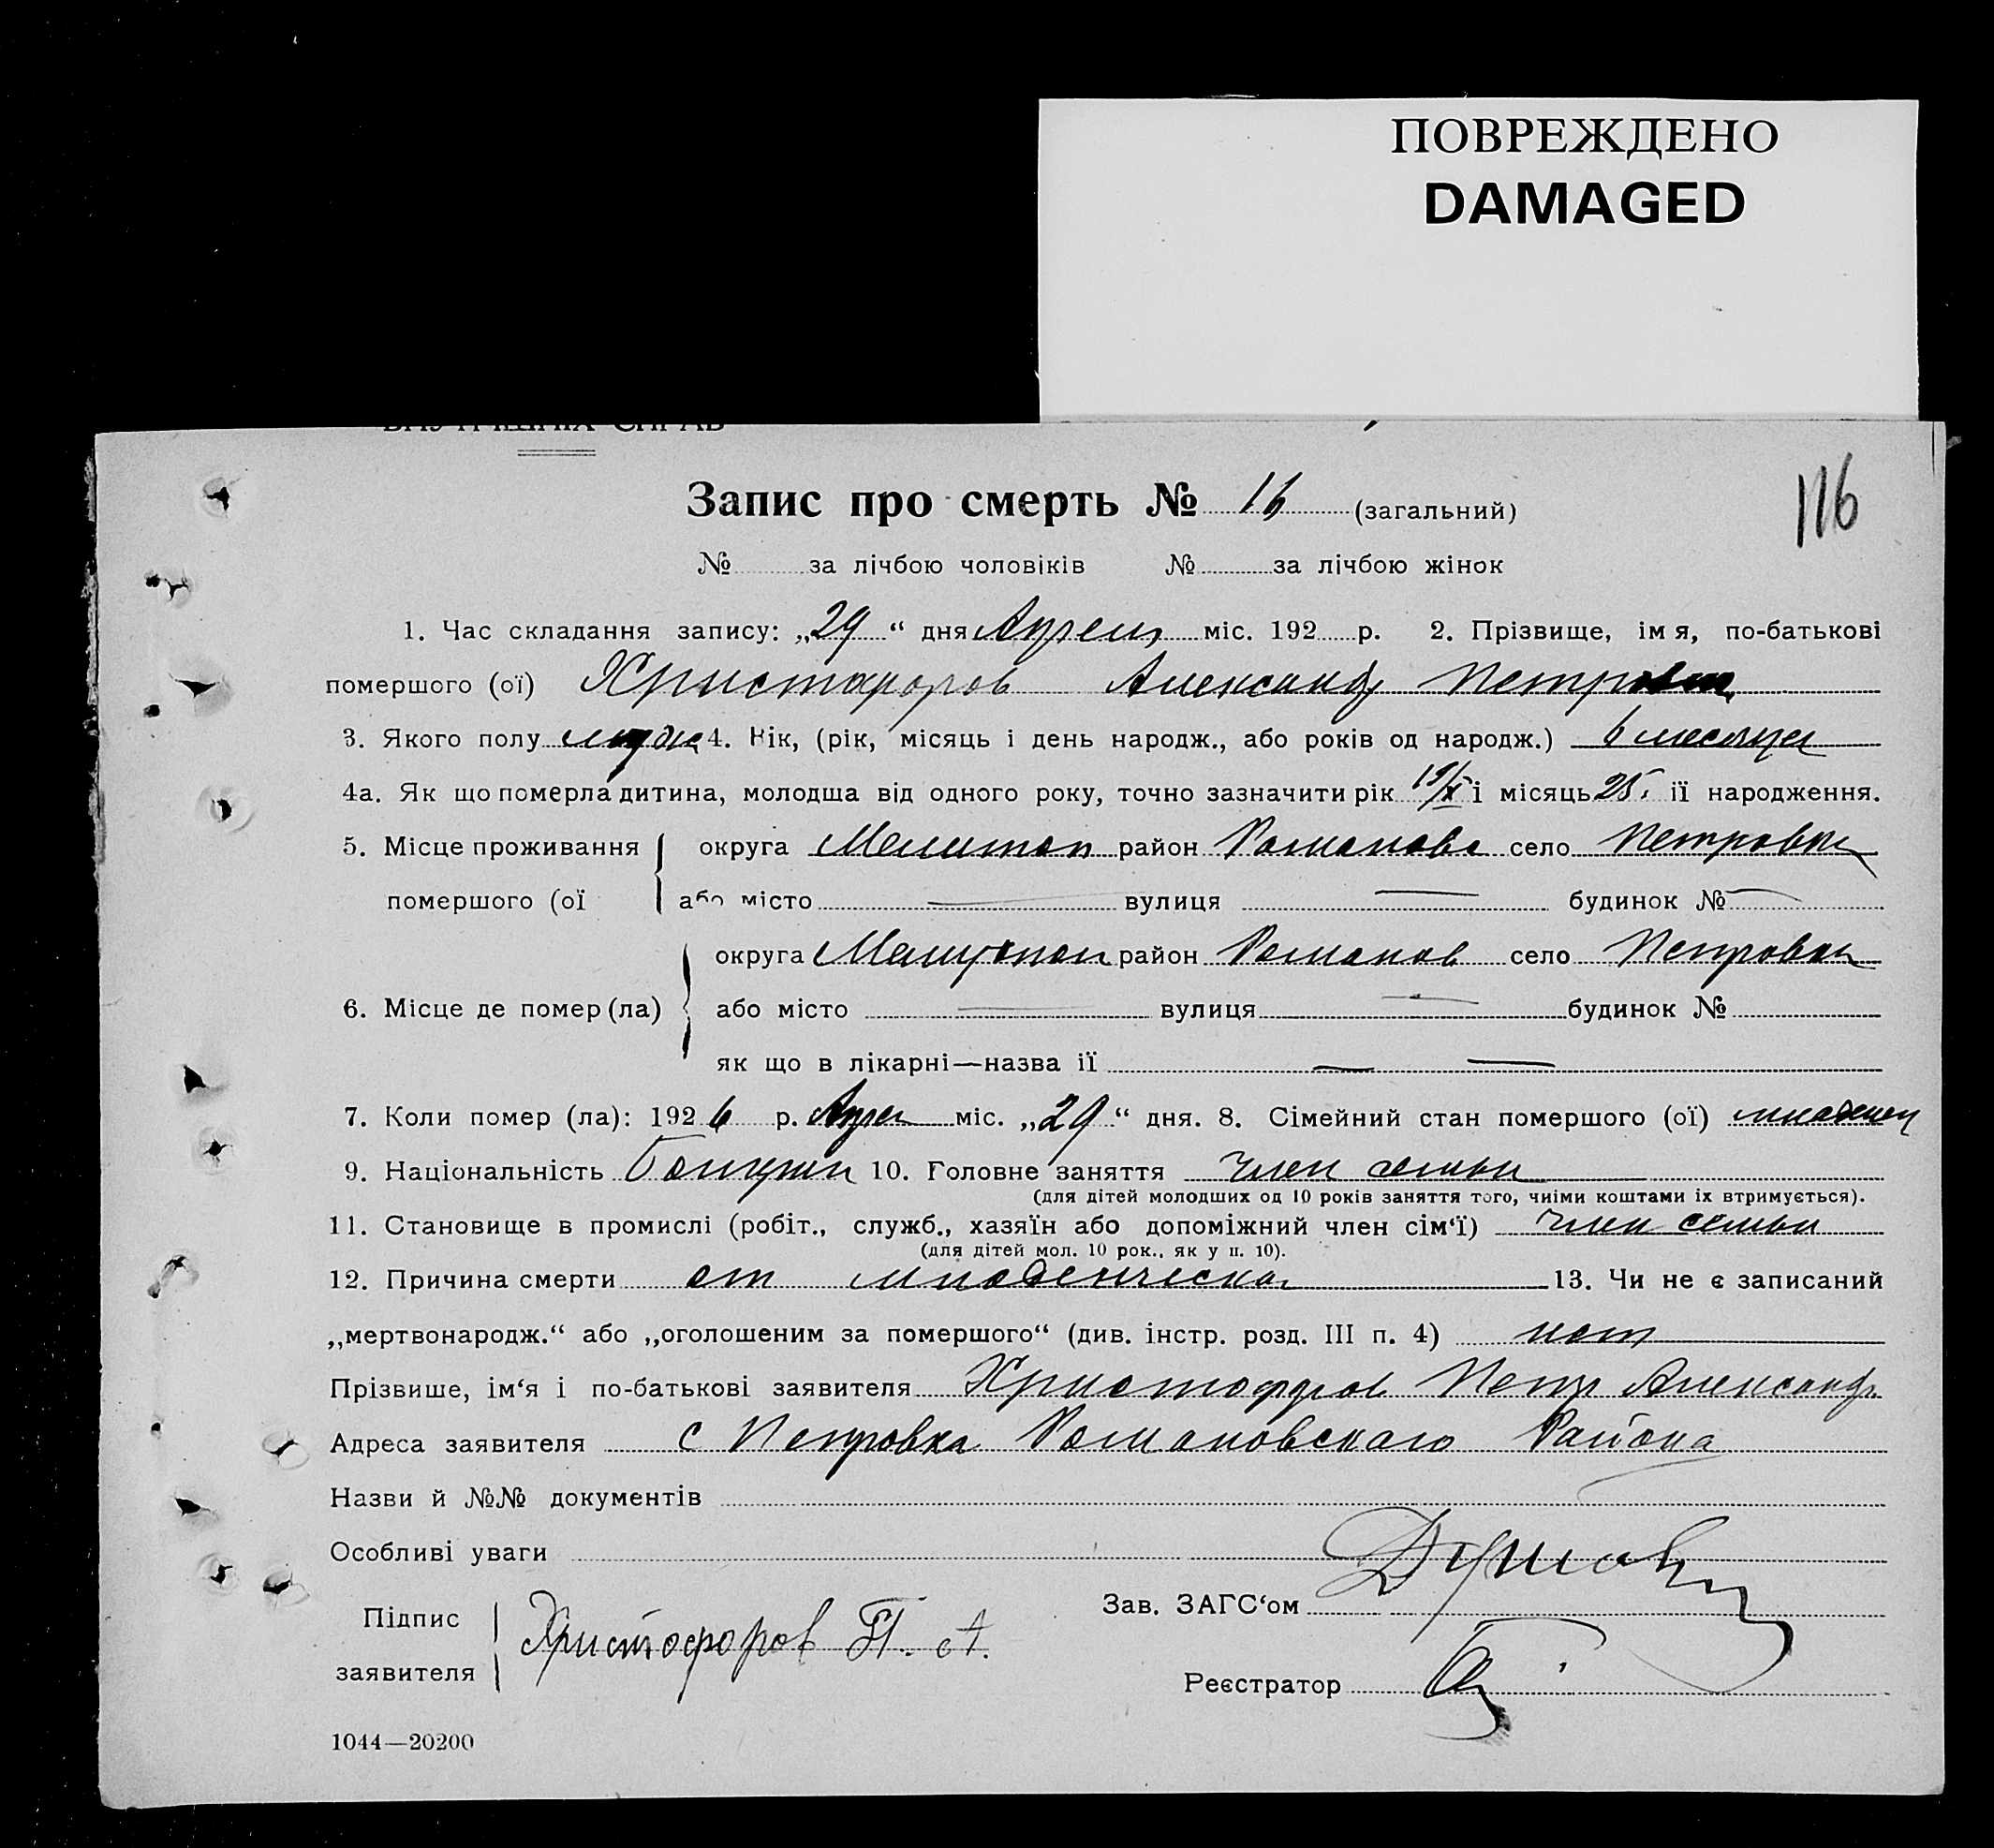 ПОВРЕЖДЕНО
DAMAGED
ВНУТРІШНІХ СПРАВ
116
Запис про смерть № 16 (загальний)
№ за лічбою чоловіків № за лічбою жінок
1. Час складання запису: „29“ дня Апреля міс. 192 р. 2. Прізвище, ім я, по-батькові
помершого (ої) Христофоров Александр Петрович
3. Якого полу мужс 4. Вік, (рік, місяць і день народж., або років од народж.) 6 месяцев
4а. Як що померла дитина, молодша від одного року, точно зазначити рік і місяць 25. її народження.
5. Місце проживання округа Мелитоп район Романовс село Петровки
помершого (ої або місто — вулиця — будинок № —
округа Мелитопол район Романов село Петровки
6. Місце де помер (ла) або місто — вулиця — будинок №
як що в лікарні—назва ії — —
7. Коли помер (ла): 1926 р. Апрел міс. „29“ дня. 8. Сімейний стан помершого (ої) младенец
9. Національність 10. Головне заняття член семьи
(для дітей молодших од 10 років заняття того, чиїми коштами їх втримується).
11. Становище в промислі (робіт., служб., хазяїн або допоміжний член сім‘ї) член семьи
(для дітей мол. 10 рок., як у п. 10).
12. Причина смерти от младенческая 13. Чи не є записаний
„мертвонародж.“ або „оголошеним за помершого“ (див. інстр. розд. III п. 4) нет
Прізвише, ім‘я і по-батькові заявителя Христофоров Петр Александр.
Адреса заявителя с Петровка Романовскаго Района
Назви й №№ документів
Особливі уваги
Зав. ЗАГС‘ом
Підпис
заявителя Христофоров П. А.
Реєстратор
1044—20200